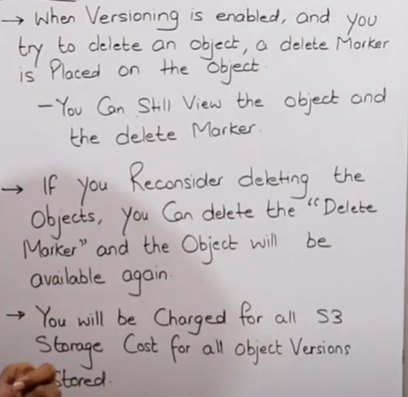 → When Versioning is enabled, and you
try to delete an object, a delete Marker
is Placed on the Object.
- You Can Still View the object and
the delete Marker.
→ If you Reconsider deleting the
Objects, you Can delete the "Delete
Marker" and the Object will be
available again.
→ You will be Charged for all S3
Storage Cost for all Object Versions
Stored.